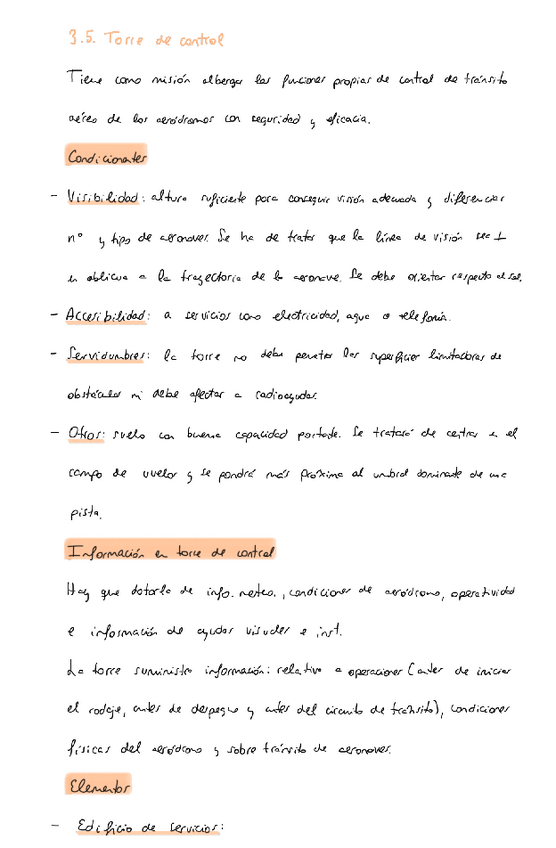 3.5. Torre de control
Tiene como misión albergar las funciones propias de control de tránsito
aéreo de los aeródromos con seguridad y eficacia.
Condicionantes
- Visibilidad: altura suficiente para conseguir visión adecuada y diferenciar
nº y tipo de aeronaves. Se ha de tratar que la línea de visión sea ⊥
u oblicua a la trayectoria de la aeronave. Se debe orientar respecto al sol.
- Accesibilidad: a servicios como electricidad, agua o telefonía.
- Servidumbres: la torre no debe penetrar las superficies limitadoras de
obstáculos ni debe afectar a radioayudas.
- Otros: suelo con buena capacidad portante. Se tratará de centrar en el
campo de vuelos y se pondrá más próxima al umbral dominante de una
pista.
Información en torre de control
Hay que dotarla de info. meteo., condiciones de aeródromo, operatividad
e información de ayudas visuales e inst.
La torre suministra información: relativa a operaciones (antes de iniciar
el rodaje, antes de despegue y antes del circuito de tránsito), condiciones
físicas del aeródromo y sobre tránsito de aeronaves.
Elementos
- Edificio de servicios: